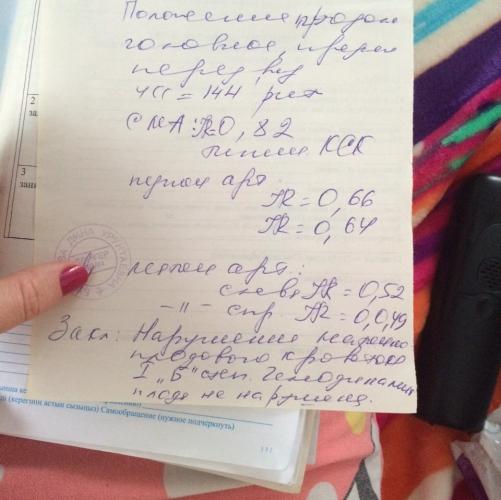 Положение продол
головное,
перед,
ЧСС = 144 рит
СМА: IR=0,82
КСК
пупоч арт:
IR = 0,66
IR = 0,64
маточн арт:
слева IR = 0,52
-"- спр. IR = 0,0,49
Закл: Нарушение маточно
плодового кровотока
I "Б" степ. Гемодинамика
плода не нарушена.
2
3
(керегінің астын сызыңыз) Самообращение (нужное подчеркнуть)